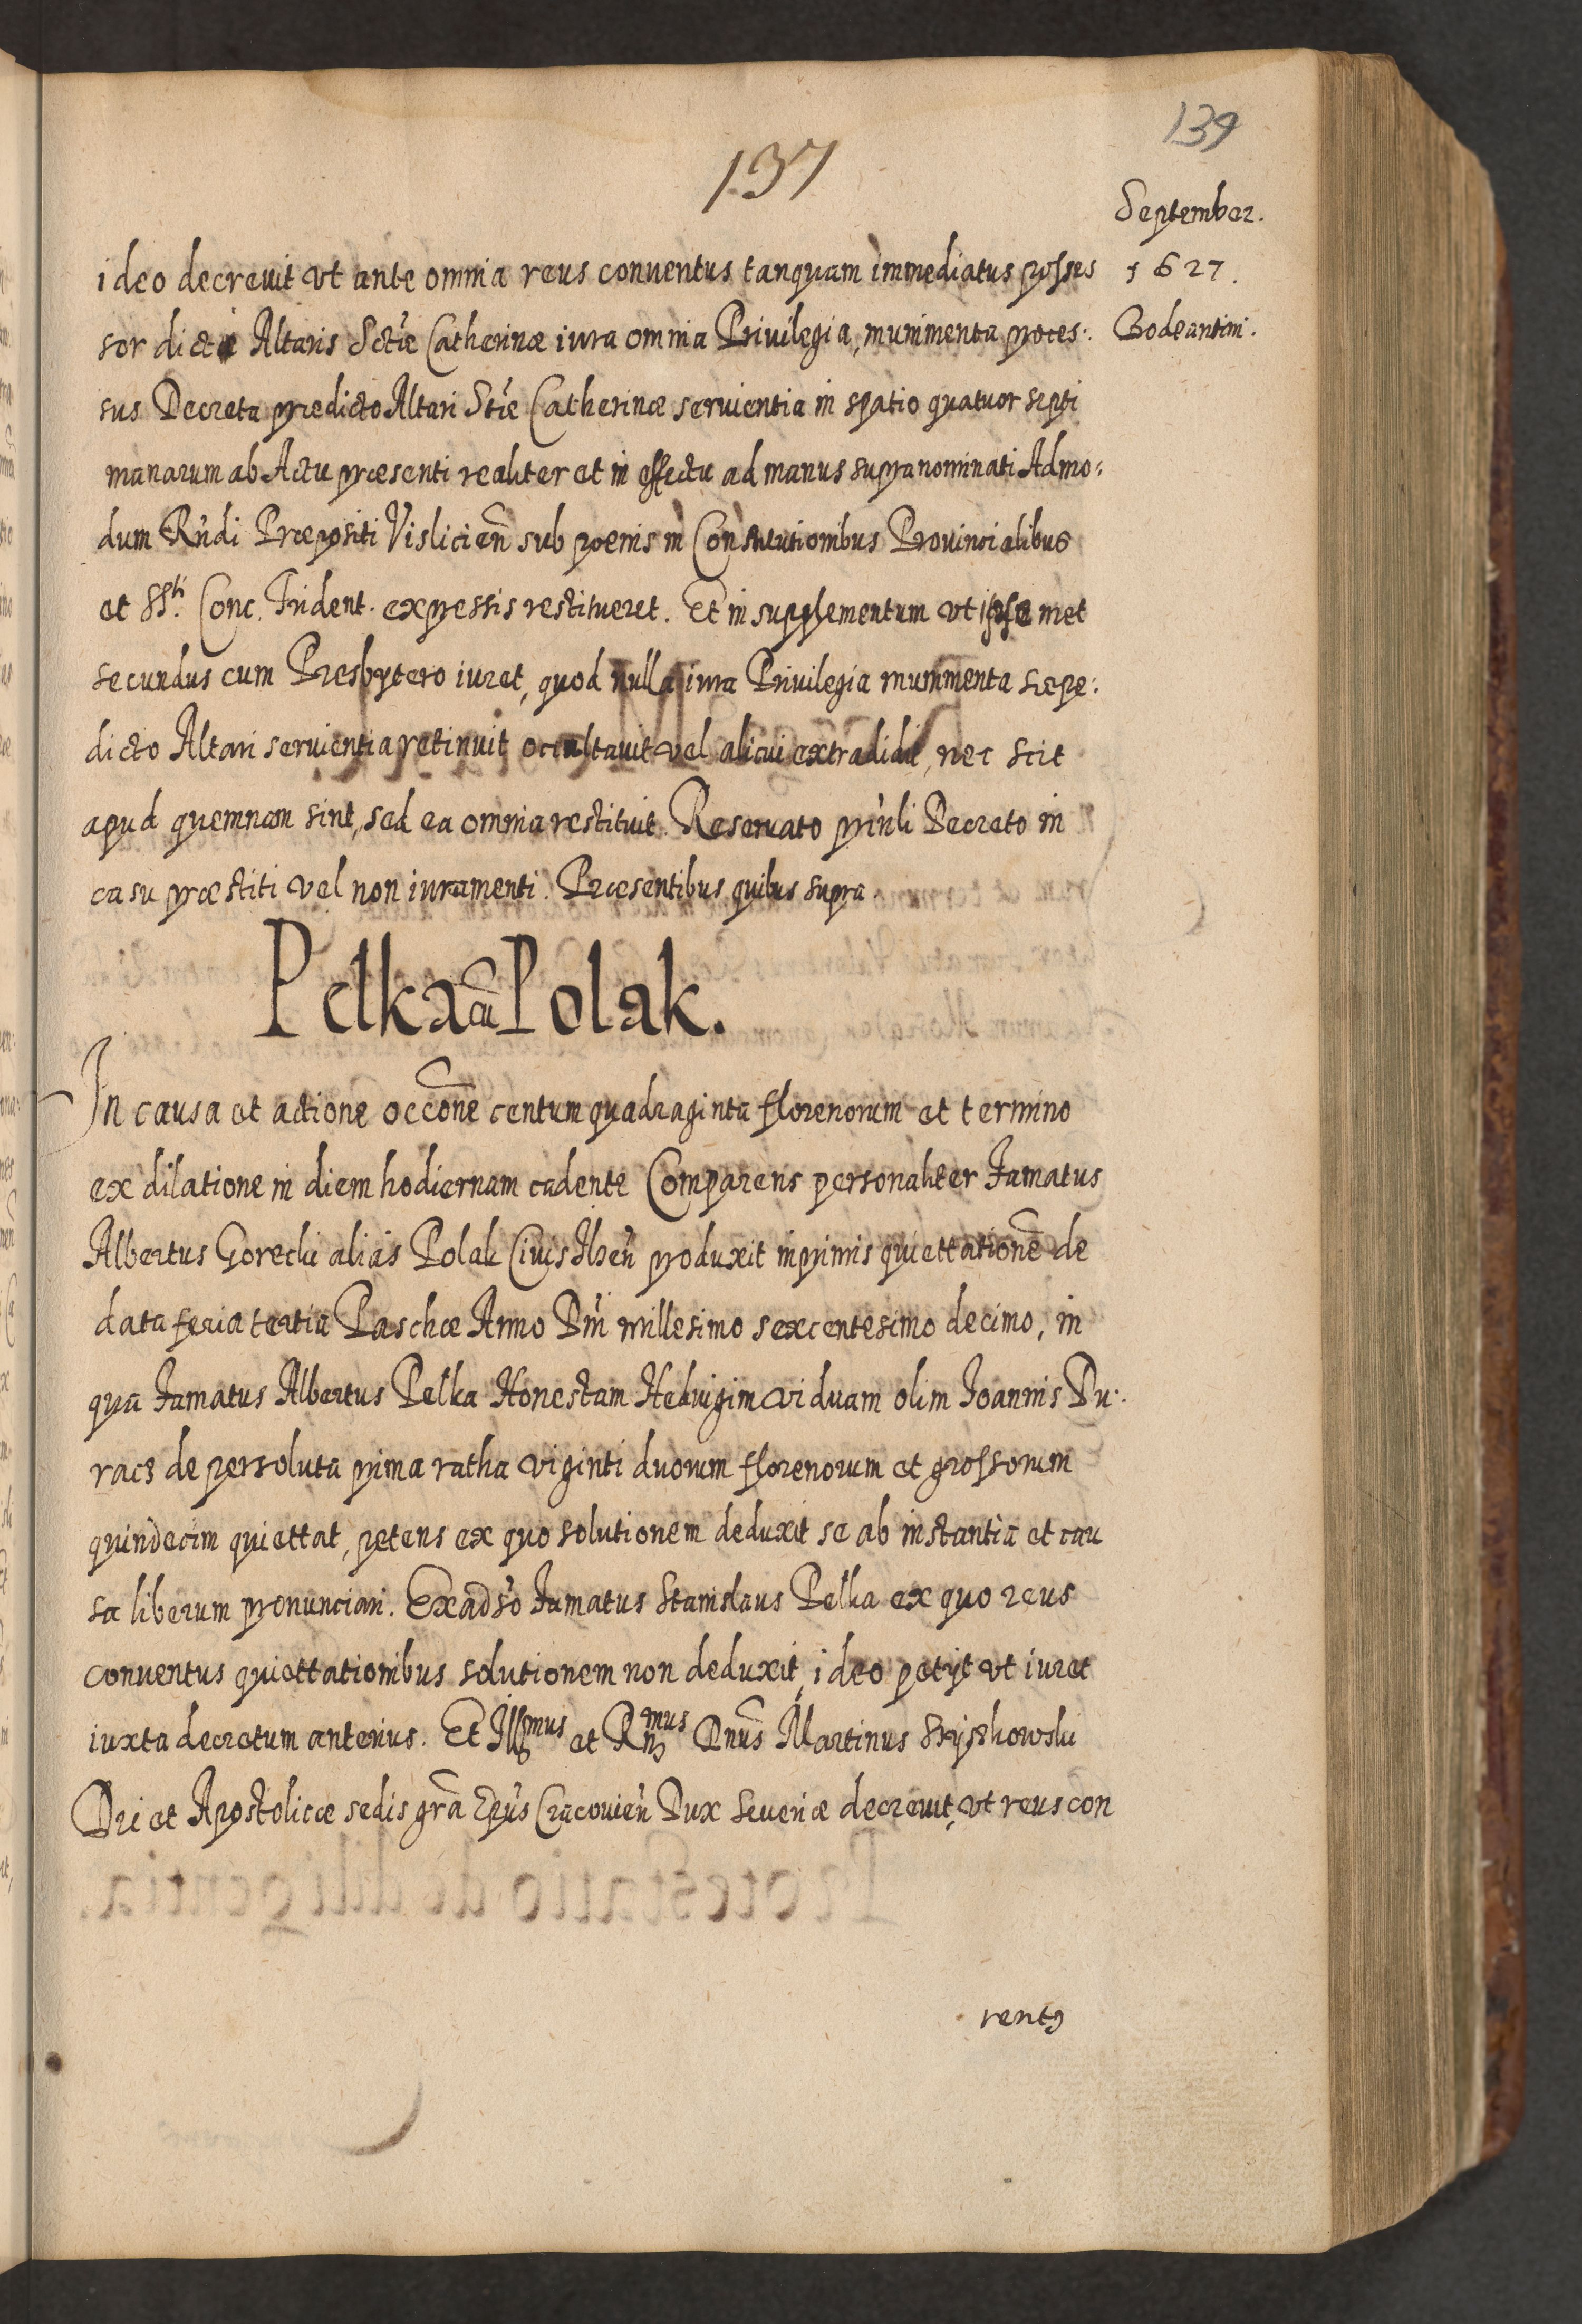 139
137
September.
1627.
Bodzantini.
ideo decreuit vt ante omnia reus conuentus tanquam immediatus posses
sor dicti Altaris Sctæ Catherinæ iura omnia Priuilegia, munimenta proces:
sus Decreta prædicto Altari Stæ Catherinæ seruientia in spatio quatuor septi
manarum ab Actu præsenti realiter et in effectu ad manus supranominati Admo:
dum Rndi Præpositi Vislicien sub poenis in Constitutionibus Prouincialibus
et SSti. Conc. Trident. expressis restitueret. Et in supplementum vt ipse met
secundus cum Presbytero iuret, quod nulla iura Priuilegia munimenta sæpe:
dicto Altari seruientia retinuit occultauit vel alicui extradidit, nec scit
apud quemnam sint, sed ea omnia restituit. Reseruato pnli Decreto in
casu præstiti vel non iuramenti. Præsentibus quibus supra.
Pelka cũ Polak.
In causa et actione occone centum quadraginta florenorum et termino
ex dilatione in diem hodiernam cadente Comparens personaliter Famatus
Albertus Gorecki alias Polak Ciuis Ilzen produxit inprimis quiettatione de
data feria tertia Paschæ Anno Dni millesimo sexcentesimo decimo, in
qua Famatus Albertus Pelka Honestam Heduigim viduam olim Joannis Du:
racz de persoluta prima ratha viginti duorum florenorum et grossorum
quindecim quiettat, petens ex quo solutionem deduxit se ab instantia et cau
sa liberum pronunciari. Exadso Famatus Stanislaus Pelka ex quo reus
conuentus quiettationibus solutionem non deduxit, ideo petijt vt iuret
iuxta decretum anterius. Et Illmus et Rmus Dnus Martinus Szyszkowski
Dei et Apostolicæ sedis gra Epus Cracouien Dux Seueriæ decreuit, vt reus con
uentq